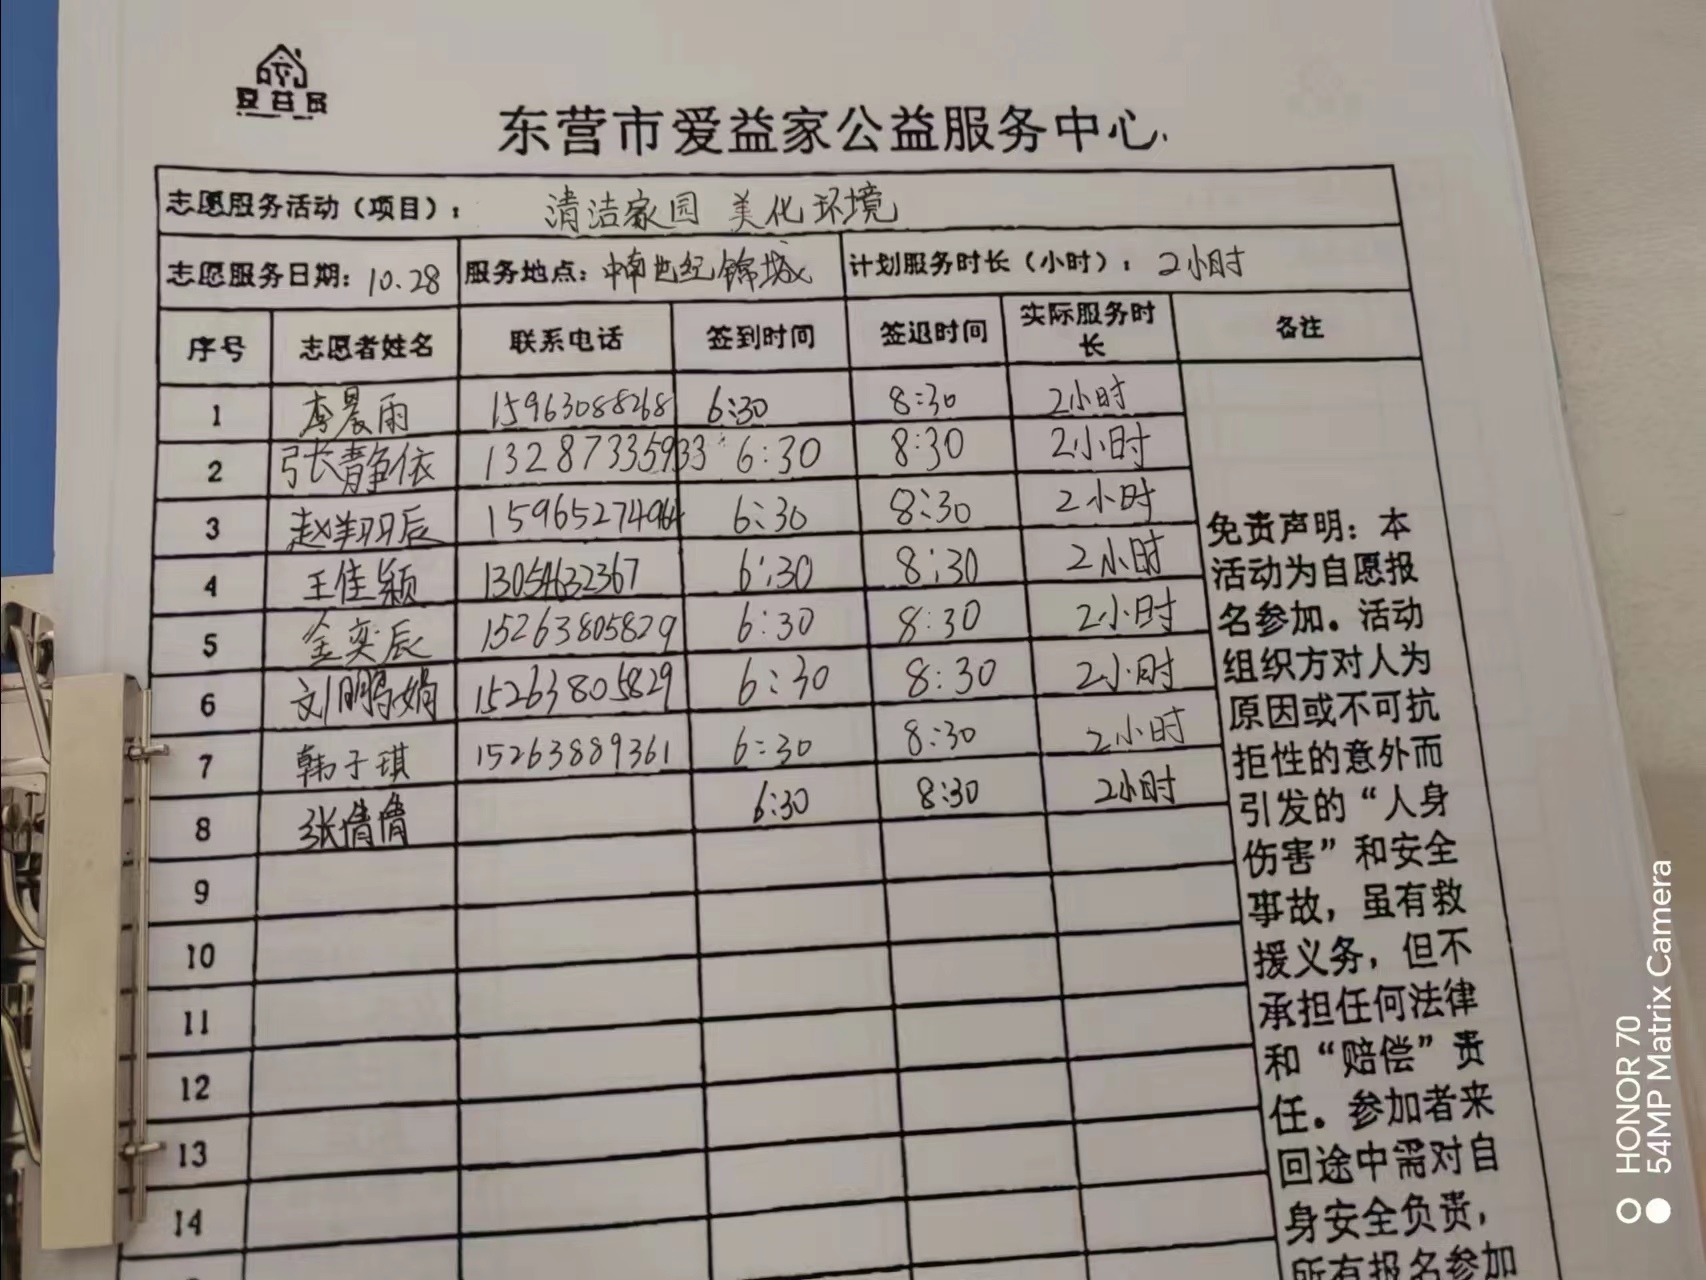 爱益家
东营市爱益家公益服务中心
志愿服务活动（项目）： 清洁家园 美化环境
志愿服务日期：10.28 服务地点：中南世纪锦城 计划服务时长（小时）：2小时
序号 志愿者姓名 联系电话 签到时间 签退时间 实际服务时长 备注
1 李晨雨 15963088268 6:30 8:30 2小时
2 张静依 13287335933 6:30 8:30 2小时
3 赵翔辰 15965274964 6:30 8:30 2小时
4 王佳颖 13054632367 6:30 8:30 2小时
5 金奕辰 15263805829 6:30 8:30 2小时
6 刘鹏娟 15263805829 6:30 8:30 2小时
7 韩子琪 15263889361 6:30 8:30 2小时
8 张倩倩 6:30 8:30 2小时
9
10
11
12
13
14
免责声明：本
活动为自愿报
名参加。活动
组织方对人为
原因或不可抗
拒性的意外而
引发的“人身
伤害”和安全
事故，虽有救
援义务，但不
承担任何法律
和“赔偿”责
任。参加者来
回途中需对自
身安全负责，
所有报名参加
HONOR 70
54MP Matrix Camera